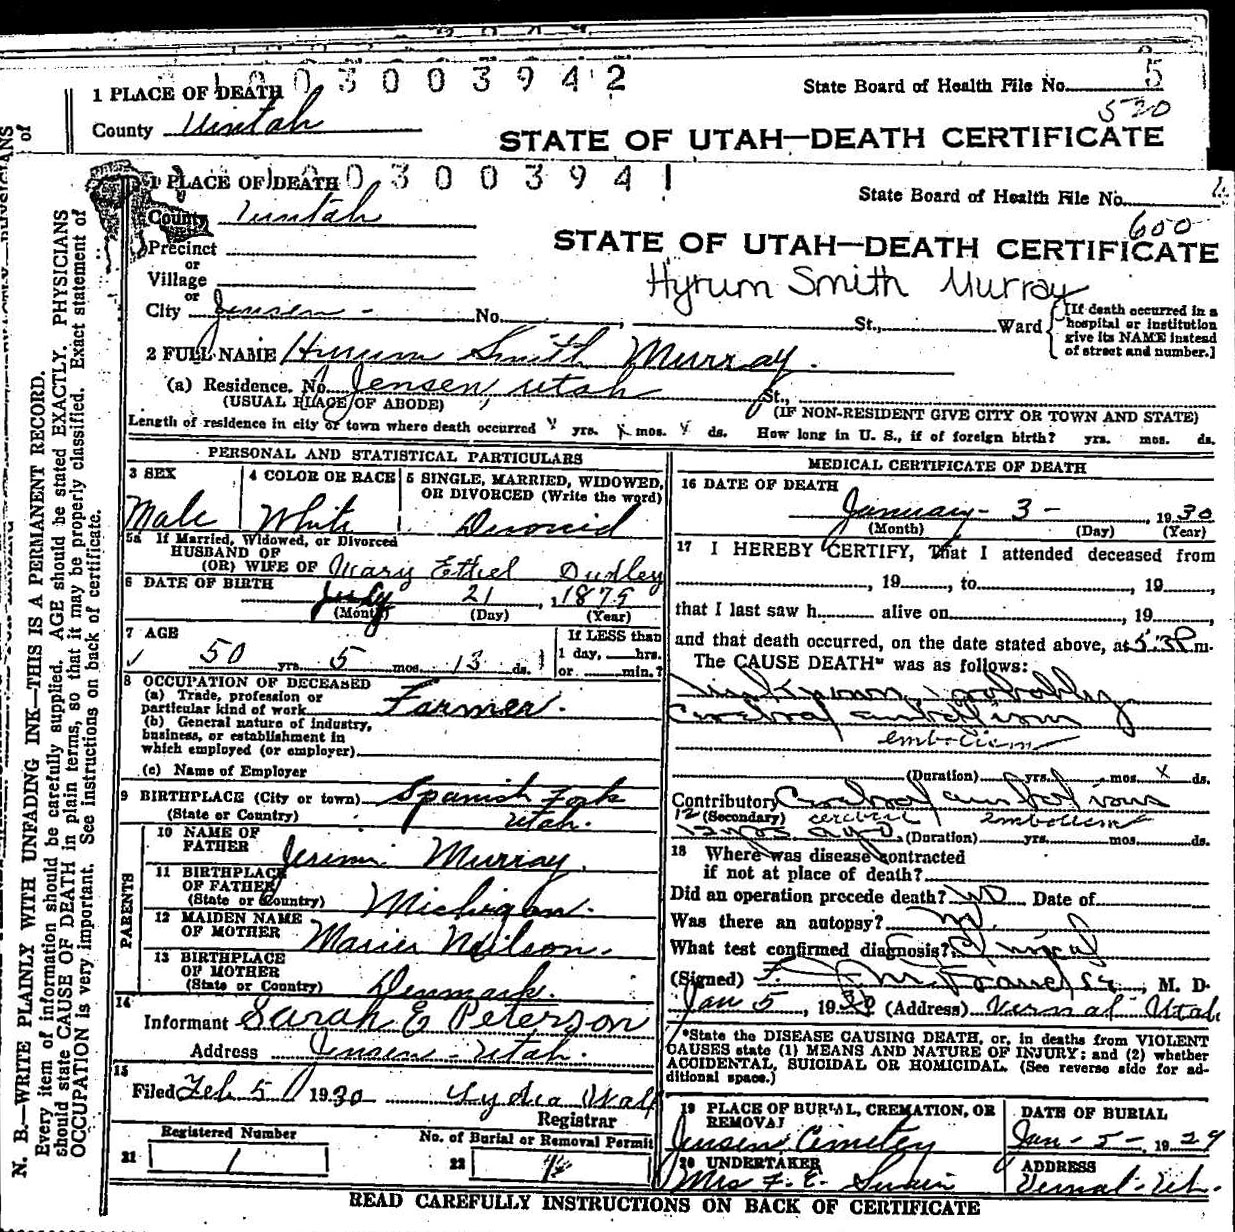 1 0 0 3 0 0 3 9 4 2
5
1 PLACE OF DEATH
State Board of Health File No.
County Uintah
520
STATE OF UTAH—DEATH CERTIFICATE
1 PLACE OF DEATH 0 3 0 0 3 9 4 1
State Board of Health File No.
County Uintah
600
Precinct
STATE OF UTAH—DEATH CERTIFICATE
or
Village
Hyrum Smith Murray
or
City Jensen - No. St., Ward
[If death occurred in a
hospital or institution
give its NAME instead
of street and number.]
2 FULL NAME Hyrum Smith Murray.
(a) Residence. No. Jensen, Utah St.,
(USUAL PLACE OF ABODE)
(IF NON-RESIDENT GIVE CITY OR TOWN AND STATE)
Length of residence in city or town where death occurred yrs. mos. ds. How long in U. S., if of foreign birth? yrs. mos. ds.
N. B.—WRITE PLAINLY WITH UNFADING INK—THIS IS A PERMANENT RECORD.
Every item of information should be carefully supplied. AGE should be stated EXACTLY. PHYSICIANS
should state CAUSE OF DEATH in plain terms, so that it may be properly classified. Exact statement of
OCCUPATION is very important. See instructions on back of certificate.
PERSONAL AND STATISTICAL PARTICULARS
3 SEX
Male
4 COLOR OR RACE
White
5 SINGLE, MARRIED, WIDOWED,
OR DIVORCED (Write the word)
5a If Married, Widowed, or Divorced
HUSBAND OF
(OR) WIFE OF Mary Ethel Dudley
6 DATE OF BIRTH
July 21, 1879
(Month) (Day) (Year)
7 AGE
50 yrs. 5 mos. 13 ds.
If LESS than
1 day, hrs.
or min.?
8 OCCUPATION OF DECEASED
(a) Trade, profession or
particular kind of work Farmer.
(b) General nature of industry,
business, or establishment in
which employed (or employer)
(c) Name of Employer
9 BIRTHPLACE (City or town) Spanish Fork
(State or Country) Utah.
PARENTS
10 NAME OF
FATHER Murray.
11 BIRTHPLACE
OF FATHER
(State or Country) Michigan.
12 MAIDEN NAME
OF MOTHER Neilson.
13 BIRTHPLACE
OF MOTHER
(State or Country) Denmark.
14
Informant Sarah E Peterson
Address Jensen - Utah.
15
Filed Feb 5 1930 Lydia
Registrar
Registered Number
21 1
No. of Burial or Removal Permit
22
MEDICAL CERTIFICATE OF DEATH
16 DATE OF DEATH
January - 3 - , 1930
(Month) (Day) (Year)
17 I HEREBY CERTIFY, That I attended deceased from
, 19 , to , 19 ,
that I last saw h alive on , 19 ,
and that death occurred, on the date stated above, at 5:30 P m.
The CAUSE DEATH* was as follows:
unknown probably
Cerebral embolism
embolism
(Duration) yrs. mos. x ds.
Contributory Cerebral embolism
12 (Secondary) cerebral embolism
12 yrs ago. (Duration) yrs. mos. ds.
18 Where was disease contracted
if not at place of death?
Did an operation precede death? NO Date of
Was there an autopsy? no
What test confirmed diagnosis? Clinical
(Signed) , M. D.
Jan 5, 1930 (Address) Vernal Utah
*State the DISEASE CAUSING DEATH, or, in deaths from VIOLENT
CAUSES state (1) MEANS AND NATURE OF INJURY; and (2) whether
ACCIDENTAL, SUICIDAL OR HOMICIDAL. (See reverse side for ad-
ditional space.)
19 PLACE OF BURIAL, CREMATION, OR
REMOVAL
Jensen Cemetery
DATE OF BURIAL
Jan - 5 - , 1929
20 UNDERTAKER
Mrs F. E. Swain
ADDRESS
Vernal - Ut.
READ CAREFULLY INSTRUCTIONS ON BACK OF CERTIFICATE